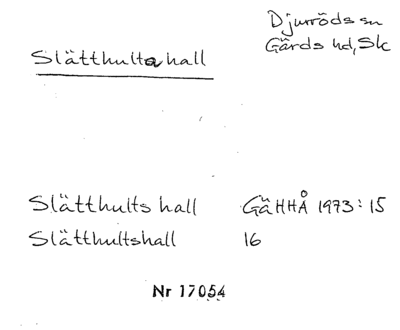 Djurröds sn
Gärds hd, Sk
Slätthulta hall
Slätthults hall GäHHÅ 1973: 15
Slätthultshall 16
Nr 17054